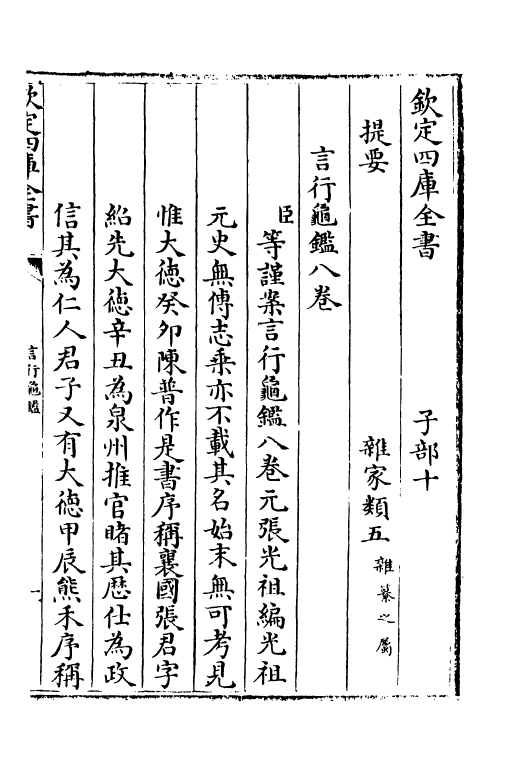 欽定四庫全書　子部十
提要　雜家類五雜纂之屬
言行龜鑑八卷
臣等謹案言行龜鑑八卷元張光祖編光祖
元史無傳志乘亦不載其名始末無可考見
惟大德癸卯陳普作是書序稱襄國張君字
紹先大德辛丑為泉州推官睹其歷仕為政
信其為仁人君子又有大德甲辰熊禾序稱
欽定四庫全書
言行龜鑑
一